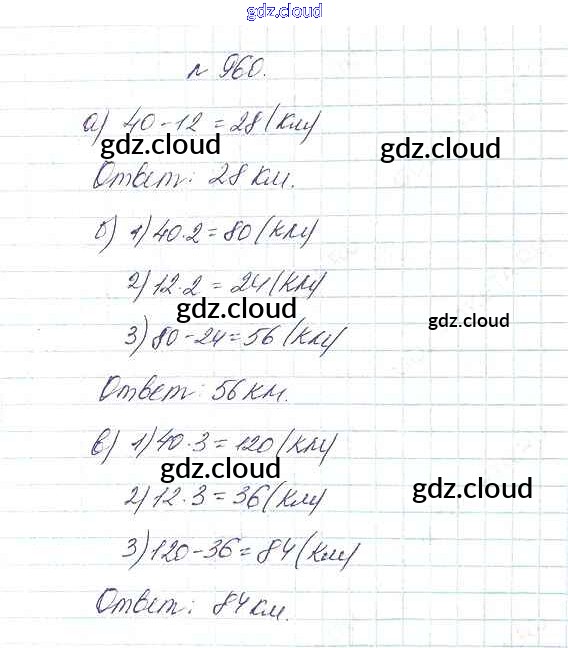 gdz.cloud
№ 960.
а) 40-12=28(км)
gdz.cloud gdz.cloud
Ответ: 28 км.
б) 1) 40·2=80(км)
2) 12·2=24(км)
gdz.cloud gdz.cloud
3) 80-24=56(км)
Ответ: 56 км.
в) 1) 40·3=120(км)
gdz.cloud gdz.cloud
2) 12·3=36(км)
3) 120-36=84(км)
Ответ: 84 км.